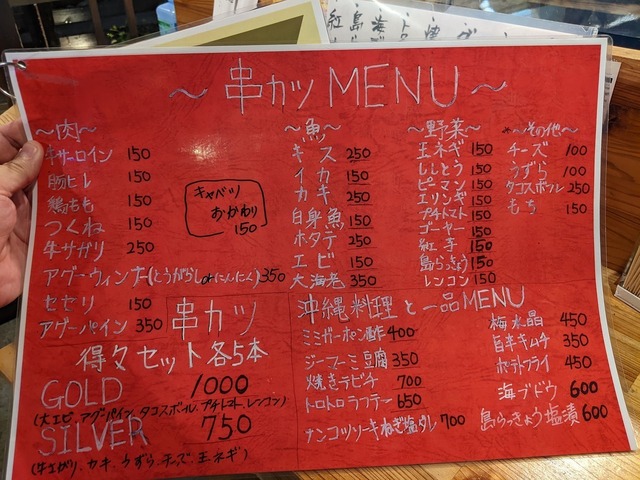 ～串カツ MENU～
～肉～
牛サーロイン 150
豚ヒレ 150
鶏もも 150
つくね 150
牛サガリ 250
アグーウィンナー(とうがらしorにんにく) 350
セセリ 150
アグーパイン 350
キャベツ
おかわり
150
～魚～
キス 250
イカ 150
カキ 250
白身魚 150
ホタテ 250
エビ 150
大海老 350
～野菜～
玉ネギ 150
ししとう 150
ピーマン 150
エリンギ 150
プチトマト 150
ゴーヤー 150
紅芋 150
島らっきょう 150
レンコン 150
～その他～
チーズ 100
うずら 100
タコスボール 250
もち 150
串カツ
得々セット各5本
GOLD 1000
(大エビ、アグーパイン、タコスボール、プチトマト、レンコン)
SILVER 750
(牛サガリ、カキ、うずら、チーズ、玉ネギ)
沖縄料理と一品MENU
ミミガーポン酢 400
ジーマーミ豆腐 350
焼きテビチ 700
トロトロラフテー 650
ナンコツソーキねぎ塩ダレ 700
梅水晶 450
旨辛キムチ 350
ポテトフライ 450
海ブドウ 600
島らっきょう塩漬 600